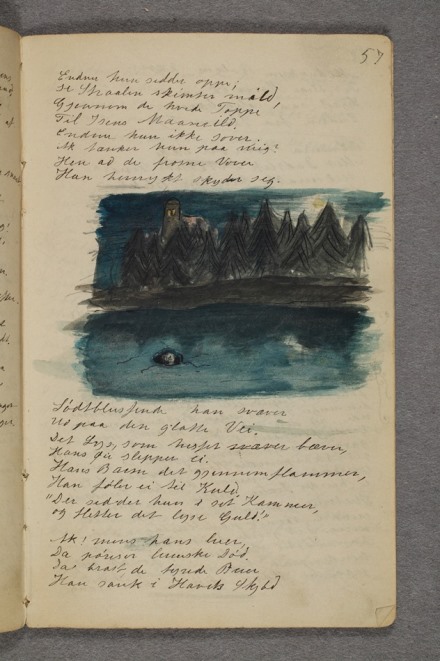 57
Endnu hun sidder oppe;
Se Straalen skimter mild,
Gjennem de hvide Toppe
Til Isens Maaneild.
Endnu hun ikke sover.
Ak tænker hun paa mig?
Hen ad de frosne Vover
Han henrykt skyder sig.
Lødtblussende han svæver
Ud paa den glatte Vei
Det Lys, som huset bærer,
Hans Øie slipper ei.
Hans Barm det gjennemflammer,
Han føler ei sit Kuld
"Der sidder hun i sit Kammer,
og fletter det lyse Guld."
Ak! mens hans
Da lumske Død.
brast de
Han sank i Havets Skjød